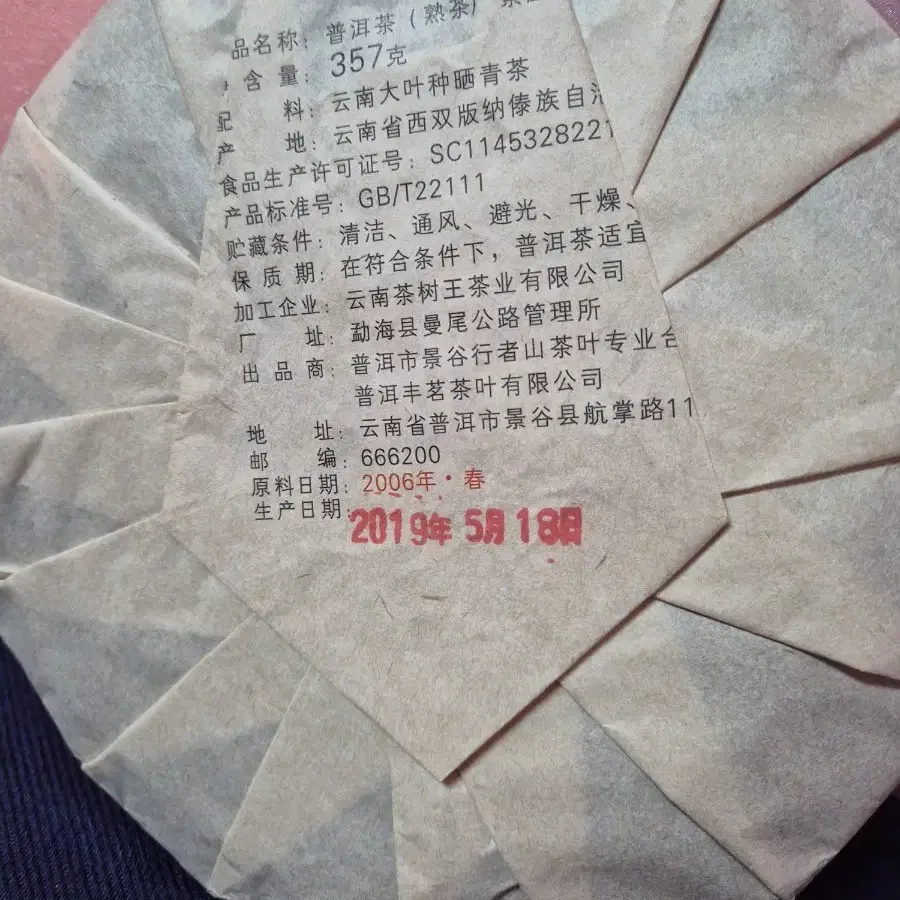 品名称：普洱茶（熟茶）
含量：357克
配料：云南大叶种晒青茶
产地：云南省西双版纳傣族自治
食品生产许可证号：SC1145328221
产品标准号：GB/T22111
贮藏条件：清洁、通风、避光、干燥、
保质期：在符合条件下，普洱茶适宜
加工企业：云南茶树王茶业有限公司
厂址：勐海县曼尾公路管理所
出品商：普洱市景谷行者山茶叶专业合
普洱丰茗茶叶有限公司
地址：云南省普洱市景谷县航掌路11
邮编：666200
原料日期：2006年·春
生产日期：
2019年5月18日